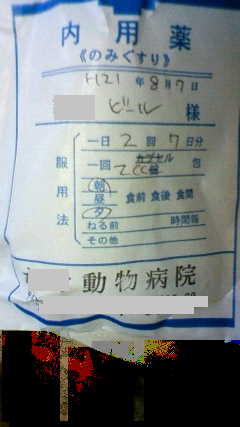 内用薬
《のみぐすり》
H21年8月7日
ビール 様
服用法
一日 2 回 7 日分
一回 2CC カプセル 錠 包
朝
昼 食前 食後 食間
夕
ねる前 時間毎
その他
動物病院